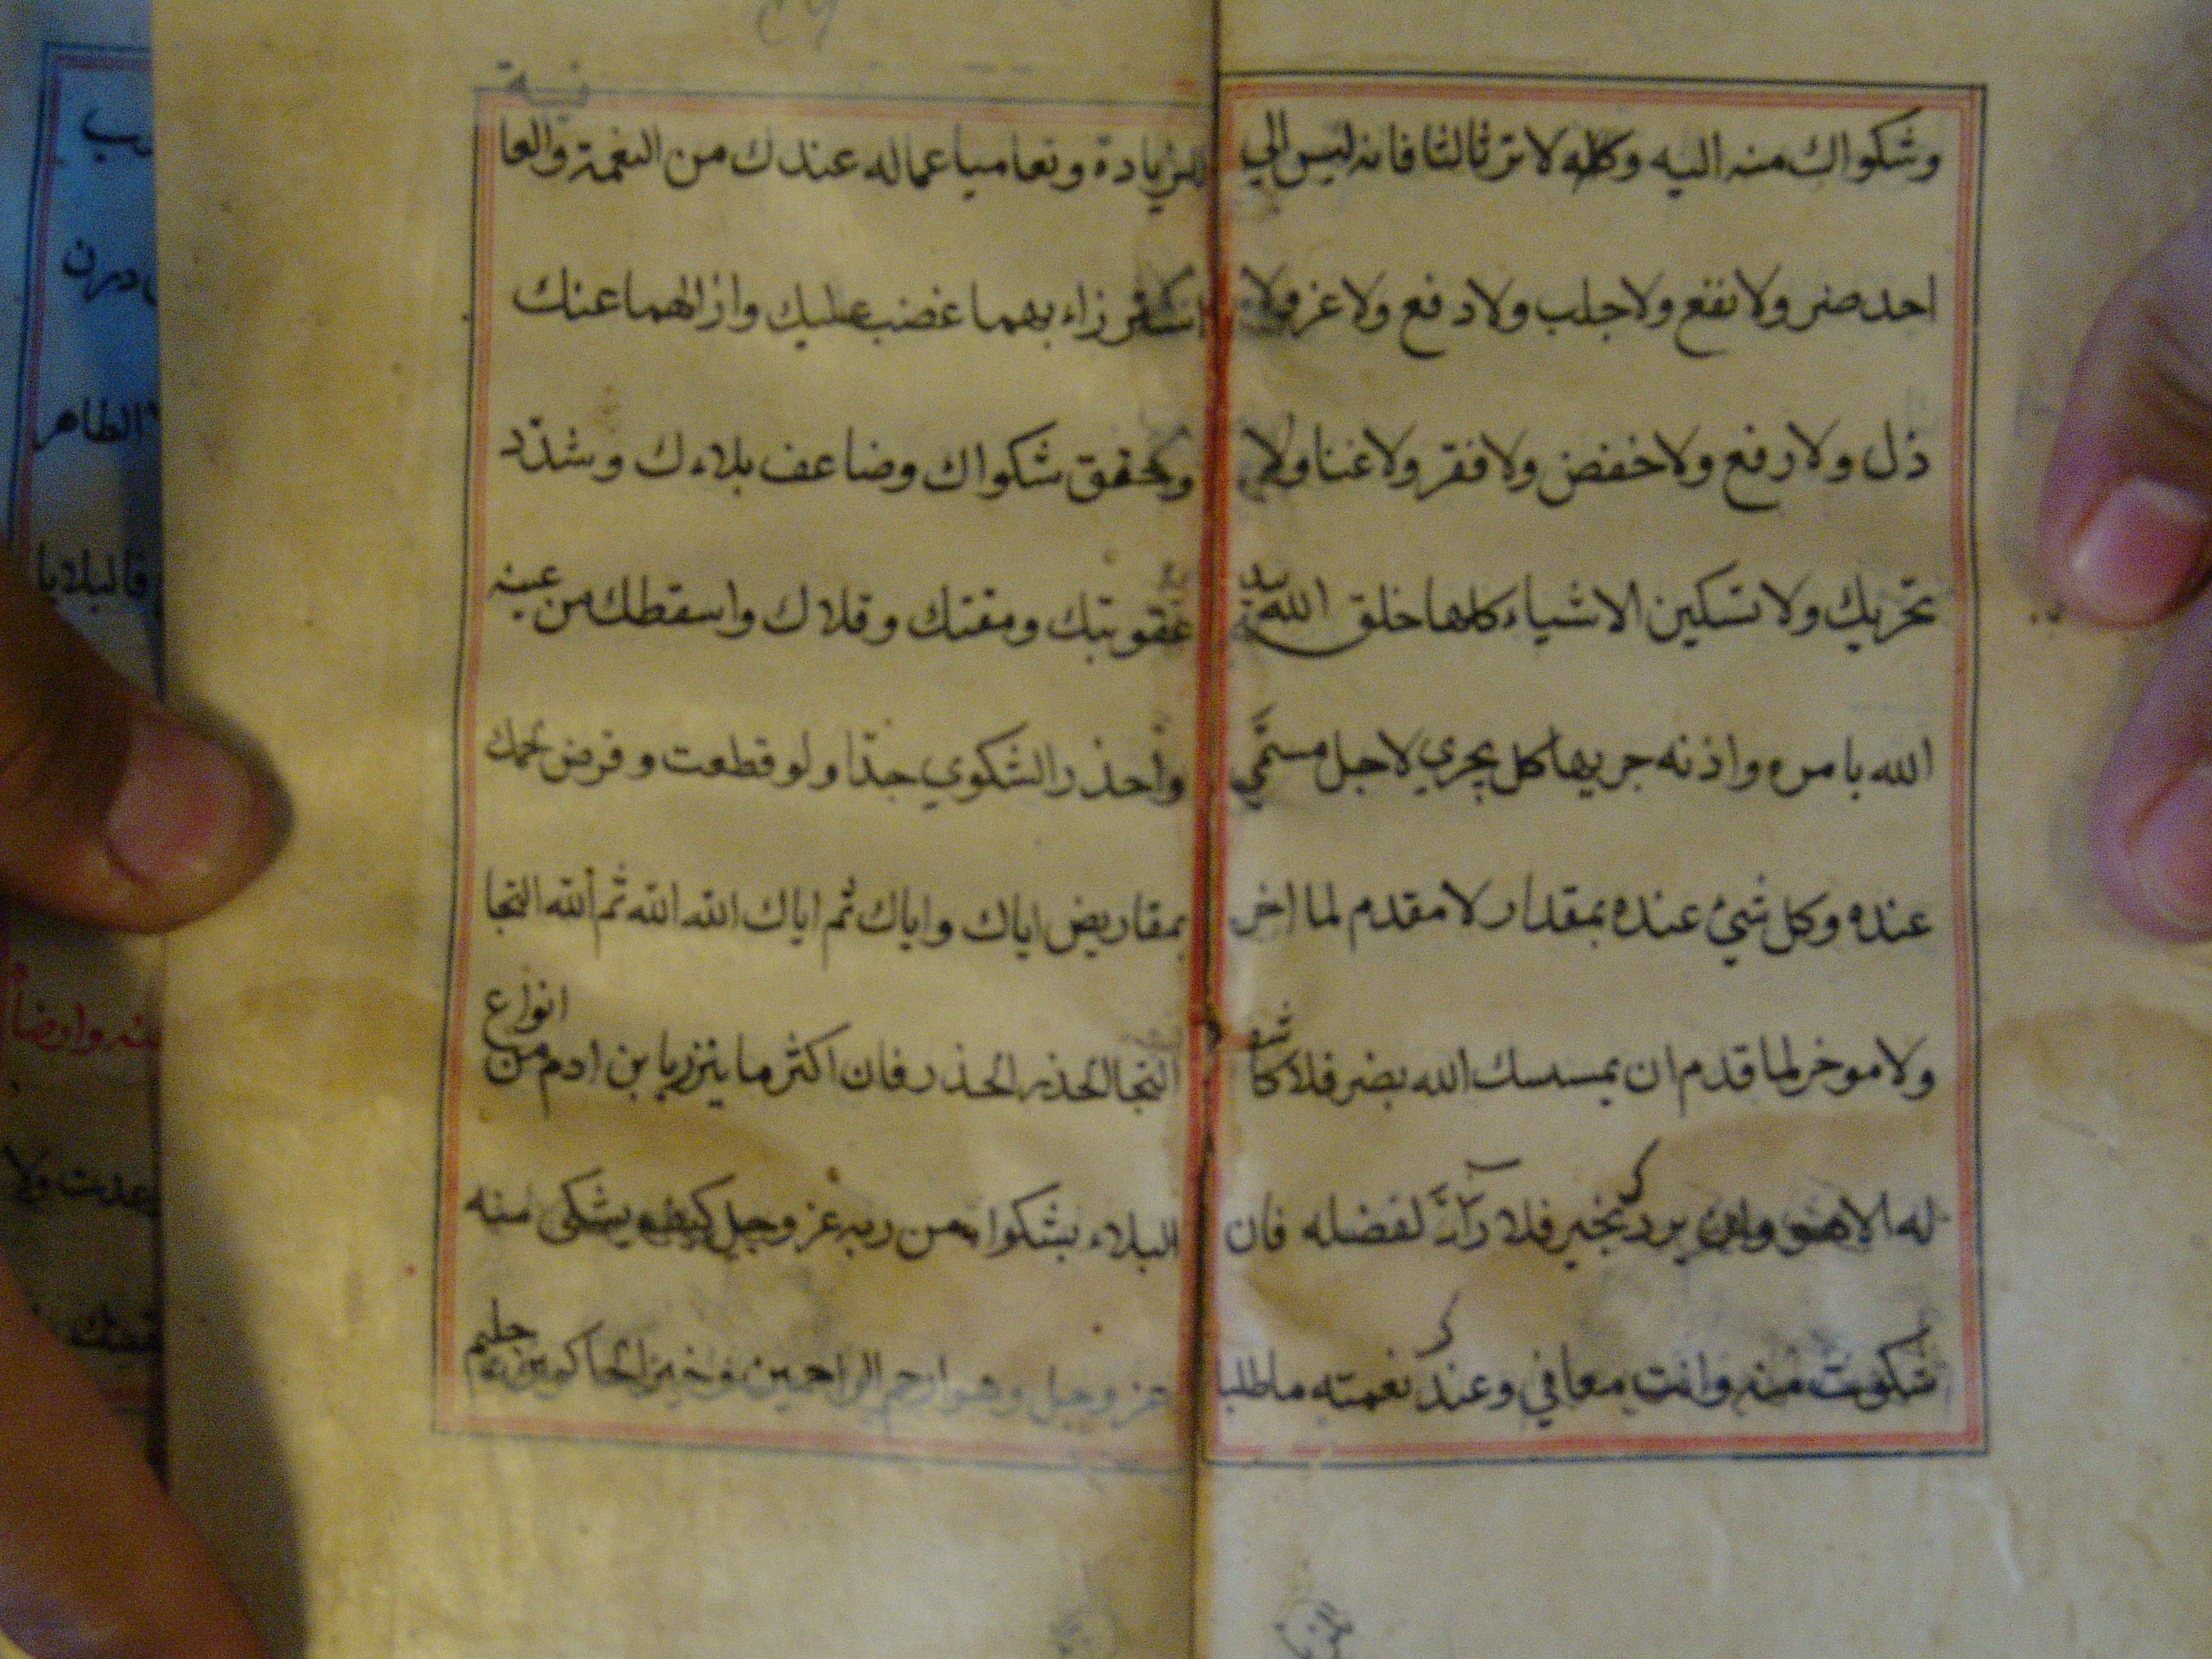 وشكواك منه اليه وكله لا تر ثالثا فانه ليس الي
احد ضر ولا نفع ولا جلب ولا دفع ولا عز ولا
ذل ولا رفع ولا خفض ولا فقر ولا غنا ولا
تحريك ولا تسكين الاشياء كلها خلق الله بيد
الله بامره واذنه جريها كل يجري لاجل مسمي
عنده وكل شئ عنده بمقدار لا مقدم لما اخر
ولا موخر لما قدم ان يمسسك الله بضر فلا كاشف
له الا هو وان يردك بخير فلا رآدّ لفضله فان
شكوت منه وانت معافي وعندك نعمته ماطلبا
للزيادة وتعاميا عماله عندك من النعمة والعافية
بهما غضب عليك وازالهما عنك
وحقق شكواك وضاعف بلاءك وشدّد
عقوبتك ومقتك وقلاك واسقطك من عينه
واحذر الشكوي جدّا ولو قطعت وقرض لحمك
بمقاريض اياك واياك ثم اياك الله الله ثم الله النجا
النجا الحذر الحذر فان اكثر ما ينزل بابن ادم من انواع
البلاء بشكواه من ربه عز وجل كيف يشكى منه
عز وجل وهو ارحم الراحمين وخير الحاكمين حليم